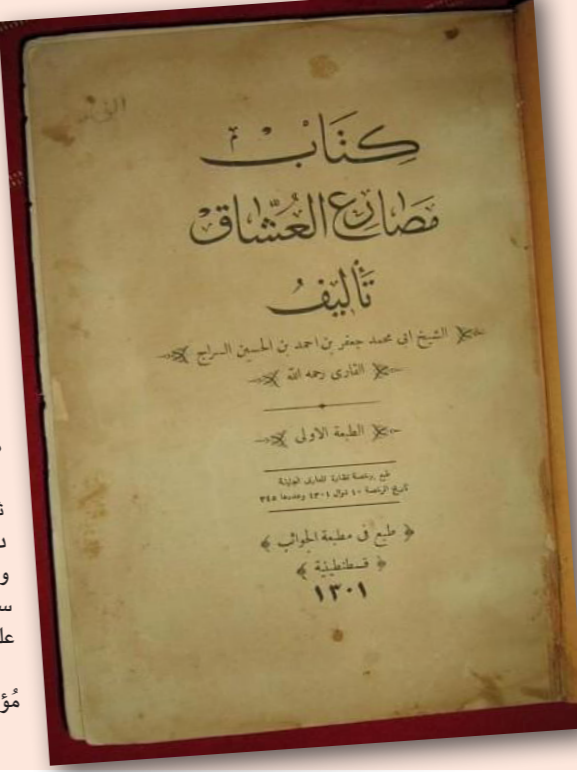 كتاب
مصارع العشاق
تأليف
الشيخ ابى محمد جعفر بن احمد بن الحسين السراج
القارى رحمه الله
الطبعة الاولى
طبع برخصة نظارة المعارف الجليلة
تاريخ الرخصة ١٠ شوال ١٣٠١ وعددها ٣٤٥
طبع فى مطبعة الجوائب
قسطنطينية
١٣٠١